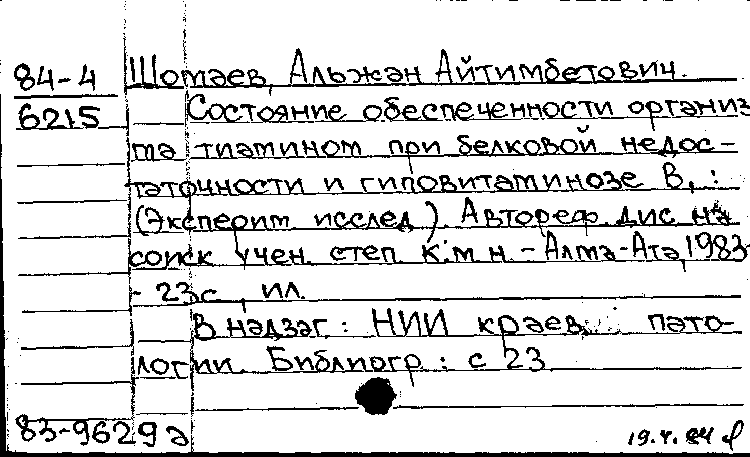 84-4 Шотаев, Альжан Айтимбетович.
6215 Состояние обеспеченности организ
ма тиамином при белковой недос-
таточности и гиповитаминозе В1 :
(Эксперим исслед) Автореф дис на
соиск учен степ к.м н. - Алма-Ата, 1983-
- 23с, ил.
В надзаг : НИИ краев. пато-
логии. Библиогр : с 23
83-9629а 19.4.84